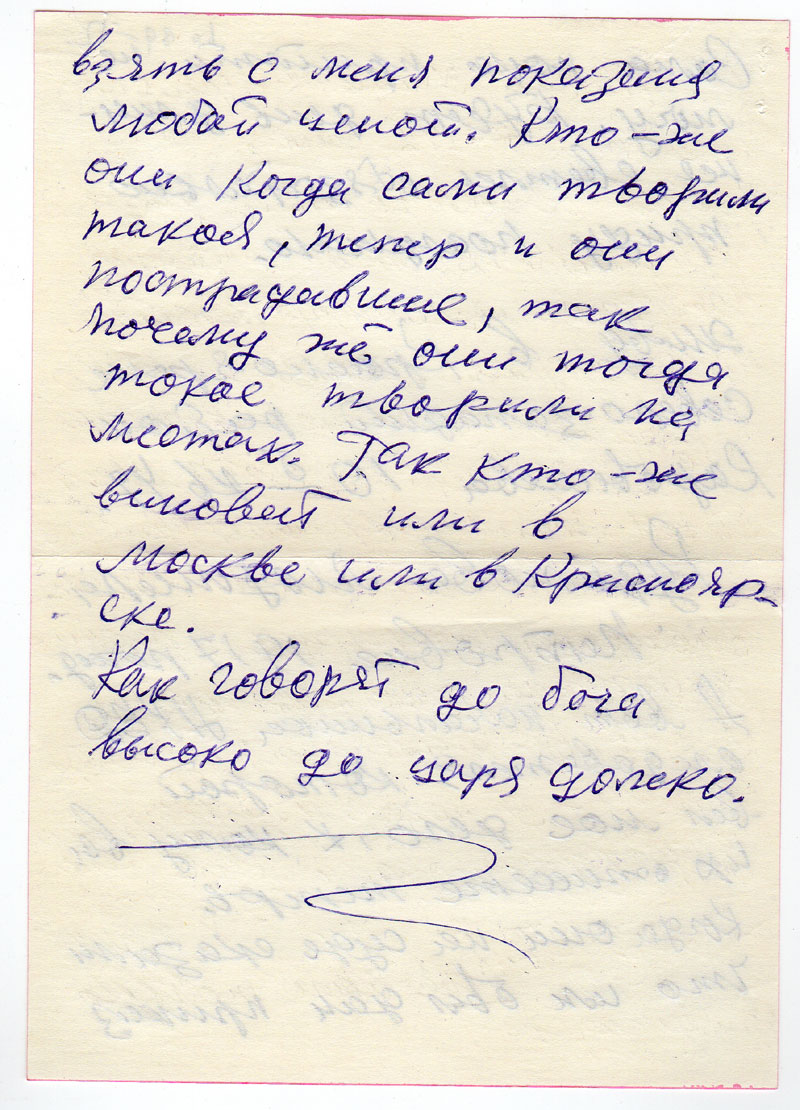 взять с меня показаня
любой ценой. Кто-же
они когда сами творили
такоя, тепер и они
пострадавшие, так
почему же они тогда
такое творили на
мистах. Так кто-же
виноват или в
Москве или в Краснояр-
ске.
Как говорят до бога
высоко до царя далеко.